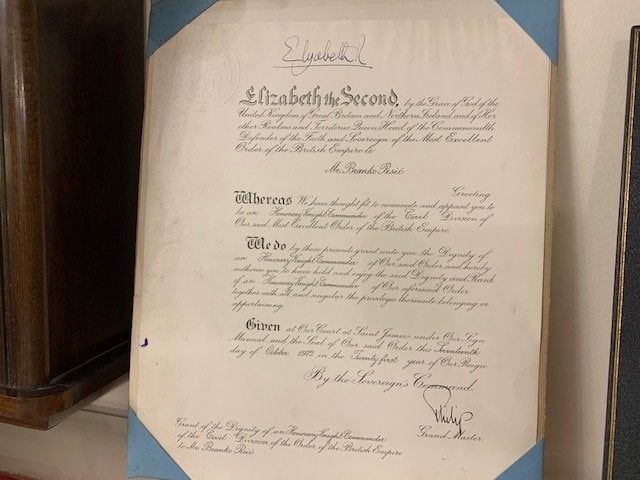 Elizabeth R
Elizabeth the Second, by the Grace of God of the
United Kingdom of Great Britain and Northern Ireland and of Her
other Realms and Territories Queen, Head of the Commonwealth,
Defender of the Faith and Sovereign of the Most Excellent
Order of the British Empire to
Mr. Branko Pešić
Greeting
Whereas We have thought fit to nominate and appoint you to
be an Honorary Knight Commander of the Civil Division of
Our said Most Excellent Order of the British Empire.
We do by these presents grant unto you the Dignity of
an Honorary Knight Commander of Our said Order and hereby
authorise you to have hold and enjoy the said Dignity and Rank
of an Honorary Knight Commander of Our aforesaid Order
together with all and singular the privileges thereunto belonging or
appertaining.
Given at Our Court at Saint James's under Our Sign
Manual and the Seal of Our said Order this Seventeenth
day of October 1972 in the Twenty-first year of Our Reign.
By the Sovereign's Command.
Philip
Grand Master.
Grant of the Dignity of an Honorary Knight Commander
of the Civil Division of the Order of the British Empire
to Mr. Branko Pešić